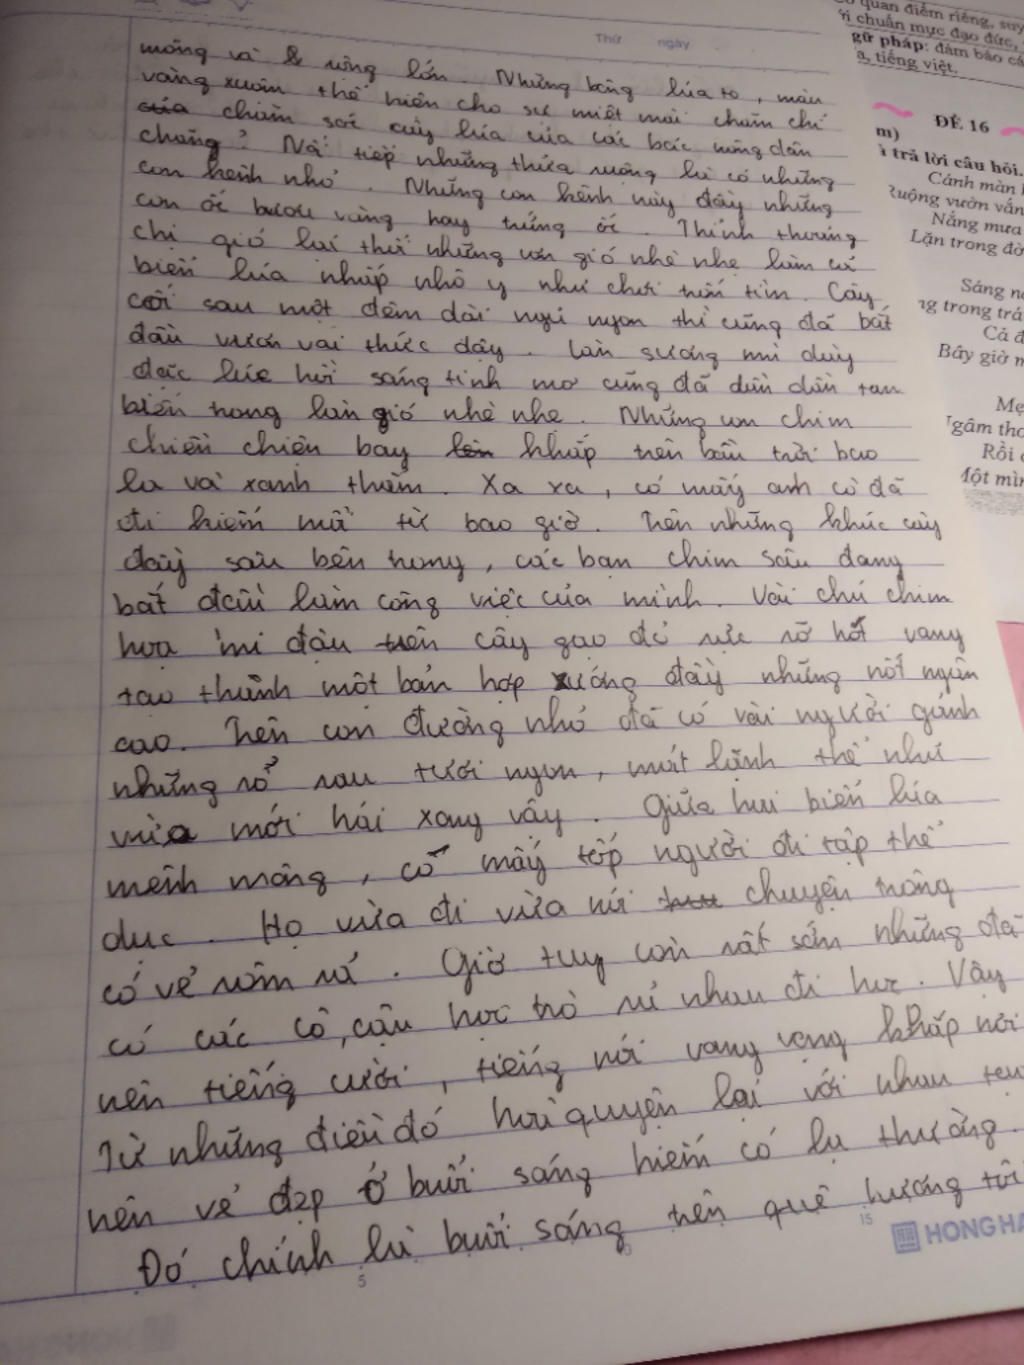 Thứ ngày
mông và & rộng lớn. Những bông lúa to, màu
vàng xuộm thể hiện cho sự miệt mài chăm chỉ
của chăm sóc cây lúa của các bác nông dân
chăng? Nối tiếp những thửa ruộng là có những
con kênh nhỏ. Những con kênh này đầy những
con ốc bươu vàng hay trứng ốc. Thỉnh thoảng
chị gió lại thổi những cơn gió nhè nhẹ làm cả
biển lúa nhấp nhô y như chơi trốn tìm. Cây
cối sau một đêm dài ngủ ngon thì cũng đã bắt
đầu vươn vai thức dậy. Làn sương mù dày
đặc lúc hồi sáng tinh mơ cũng đã dần dần tan
biến trong làn gió nhè nhẹ. Những con chim
chiền chiện bay lên khắp trên bầu trời bao
la và xanh thẳm. Xa xa, có mấy anh cò đã
đi kiếm mồi từ bao giờ. Trên những khúc cây
đầy sâu bên trong, các bạn chim sâu đang
bắt đầu làm công việc của mình. Vài chú chim
họa mi đậu trên cây gạo đỏ rực rỡ hót vang
tạo thành một bản hợp xướng đầy những nốt ngân
cao. Trên con đường nhỏ đã có vài người gánh
những rổ rau tươi ngon, mát lành thể như
vừa mới hái xong vậy. Giữa hai biển lúa
mênh mông, có mấy tốp người đi tập thể
dục. Họ vừa đi vừa nói chuyện trông
có vẻ rôm rả. Giờ tuy còn rất sớm nhưng đã
có các cô, cậu học trò rủ nhau đi học. Vậy
nên tiếng cười, tiếng nói vang vọng khắp nơi
Từ những điều đó hòa quyện lại với nhau tạo
nên vẻ đẹp ở buổi sáng hiếm có lạ thường.
Đó chính là buổi sáng trên quê hương tôi
5
10
15
HONG HA
quan điểm riêng, suy
i chuẩn mực đạo đức,
gữ pháp: đảm bảo cá
a, tiếng việt.
ĐỀ 16
m)
à trả lời câu hỏi.
Cánh màn
Ruộng vườn vắn
Nắng mưa
Lặn trong đờ
Sáng n
ng trong trá
Cả
Bây giờ
Mẹ
gâm tho
Rồi
Một mì